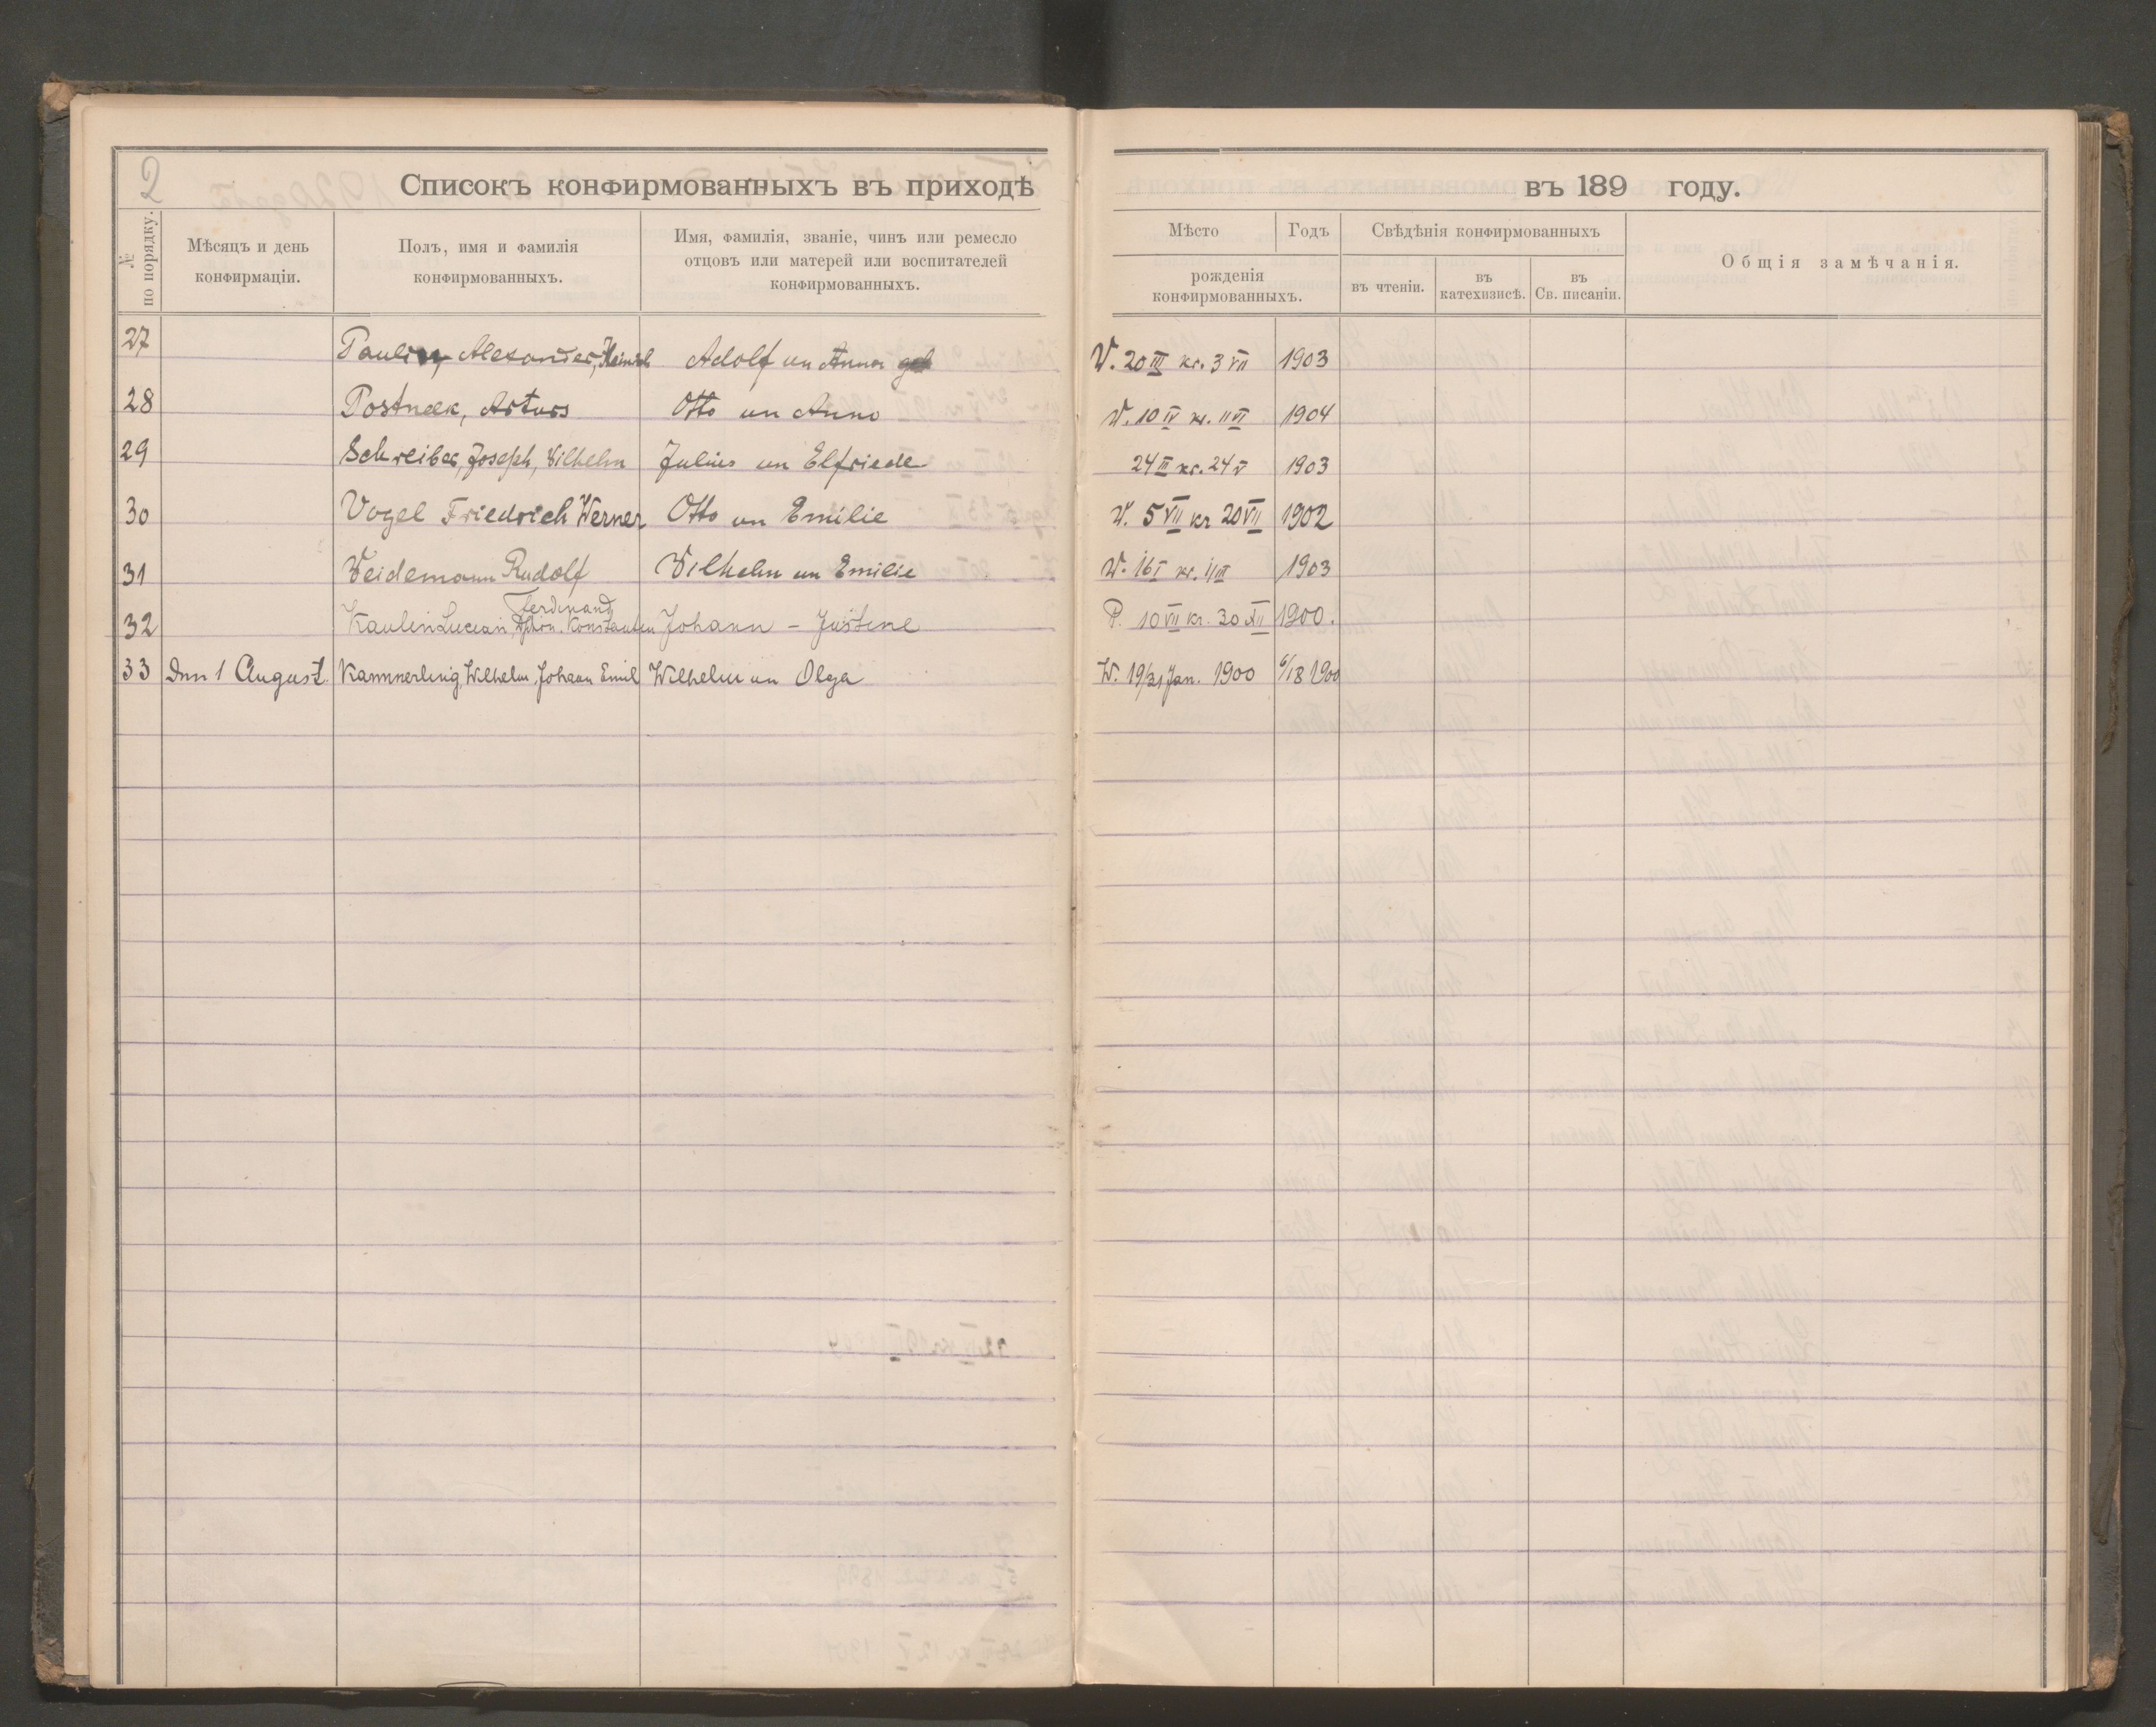 2
Списокъ конфирмованныхъ въ приходѣ въ 189 году.
№ по порядку.
Мѣсяцъ и день конфирмаціи.
Полъ, имя и фамилія конфирмованныхъ.
Имя, фамилія, званіе, чинъ или ремесло отцовъ или матерей или воспитателей конфирмованныхъ.
Мѣсто
Годъ
рожденія конфирмованныхъ.
Свѣдѣнія конфирмованныхъ
въ чтеніи.
въ катехизисѣ.
въ Св. писаніи.
Общія замѣчанія.
27 Paulin, Alexander, Heinrich Adolf un Anna W. 20 III kr. 3 VII 1903
28 Postneek, Arturs Otto un Anna W. 10 IV kr. 11 VI 1904
29 Schreiber, Joseph, Wilhelm Julius un Elfriede 24 III kr. 24 V 1903
30 Vogel Friedrich Werner Otto un Emilie W. 5 VII kr 20 VII 1902
31 Weidemann Rudolf Wilhelm un Emilie W. 16 I kr. 11 III 1903
Ferdinand
32 Kaulin Lucian, Konstantin Johann - Justine P. 10 VII kr. 30 XII 1900.
33 Den 1 August. Kammerling, Wilhelm, Johann Emil Wilhelm un Olga W. 19/31 Jan. 1900 6/18 1900